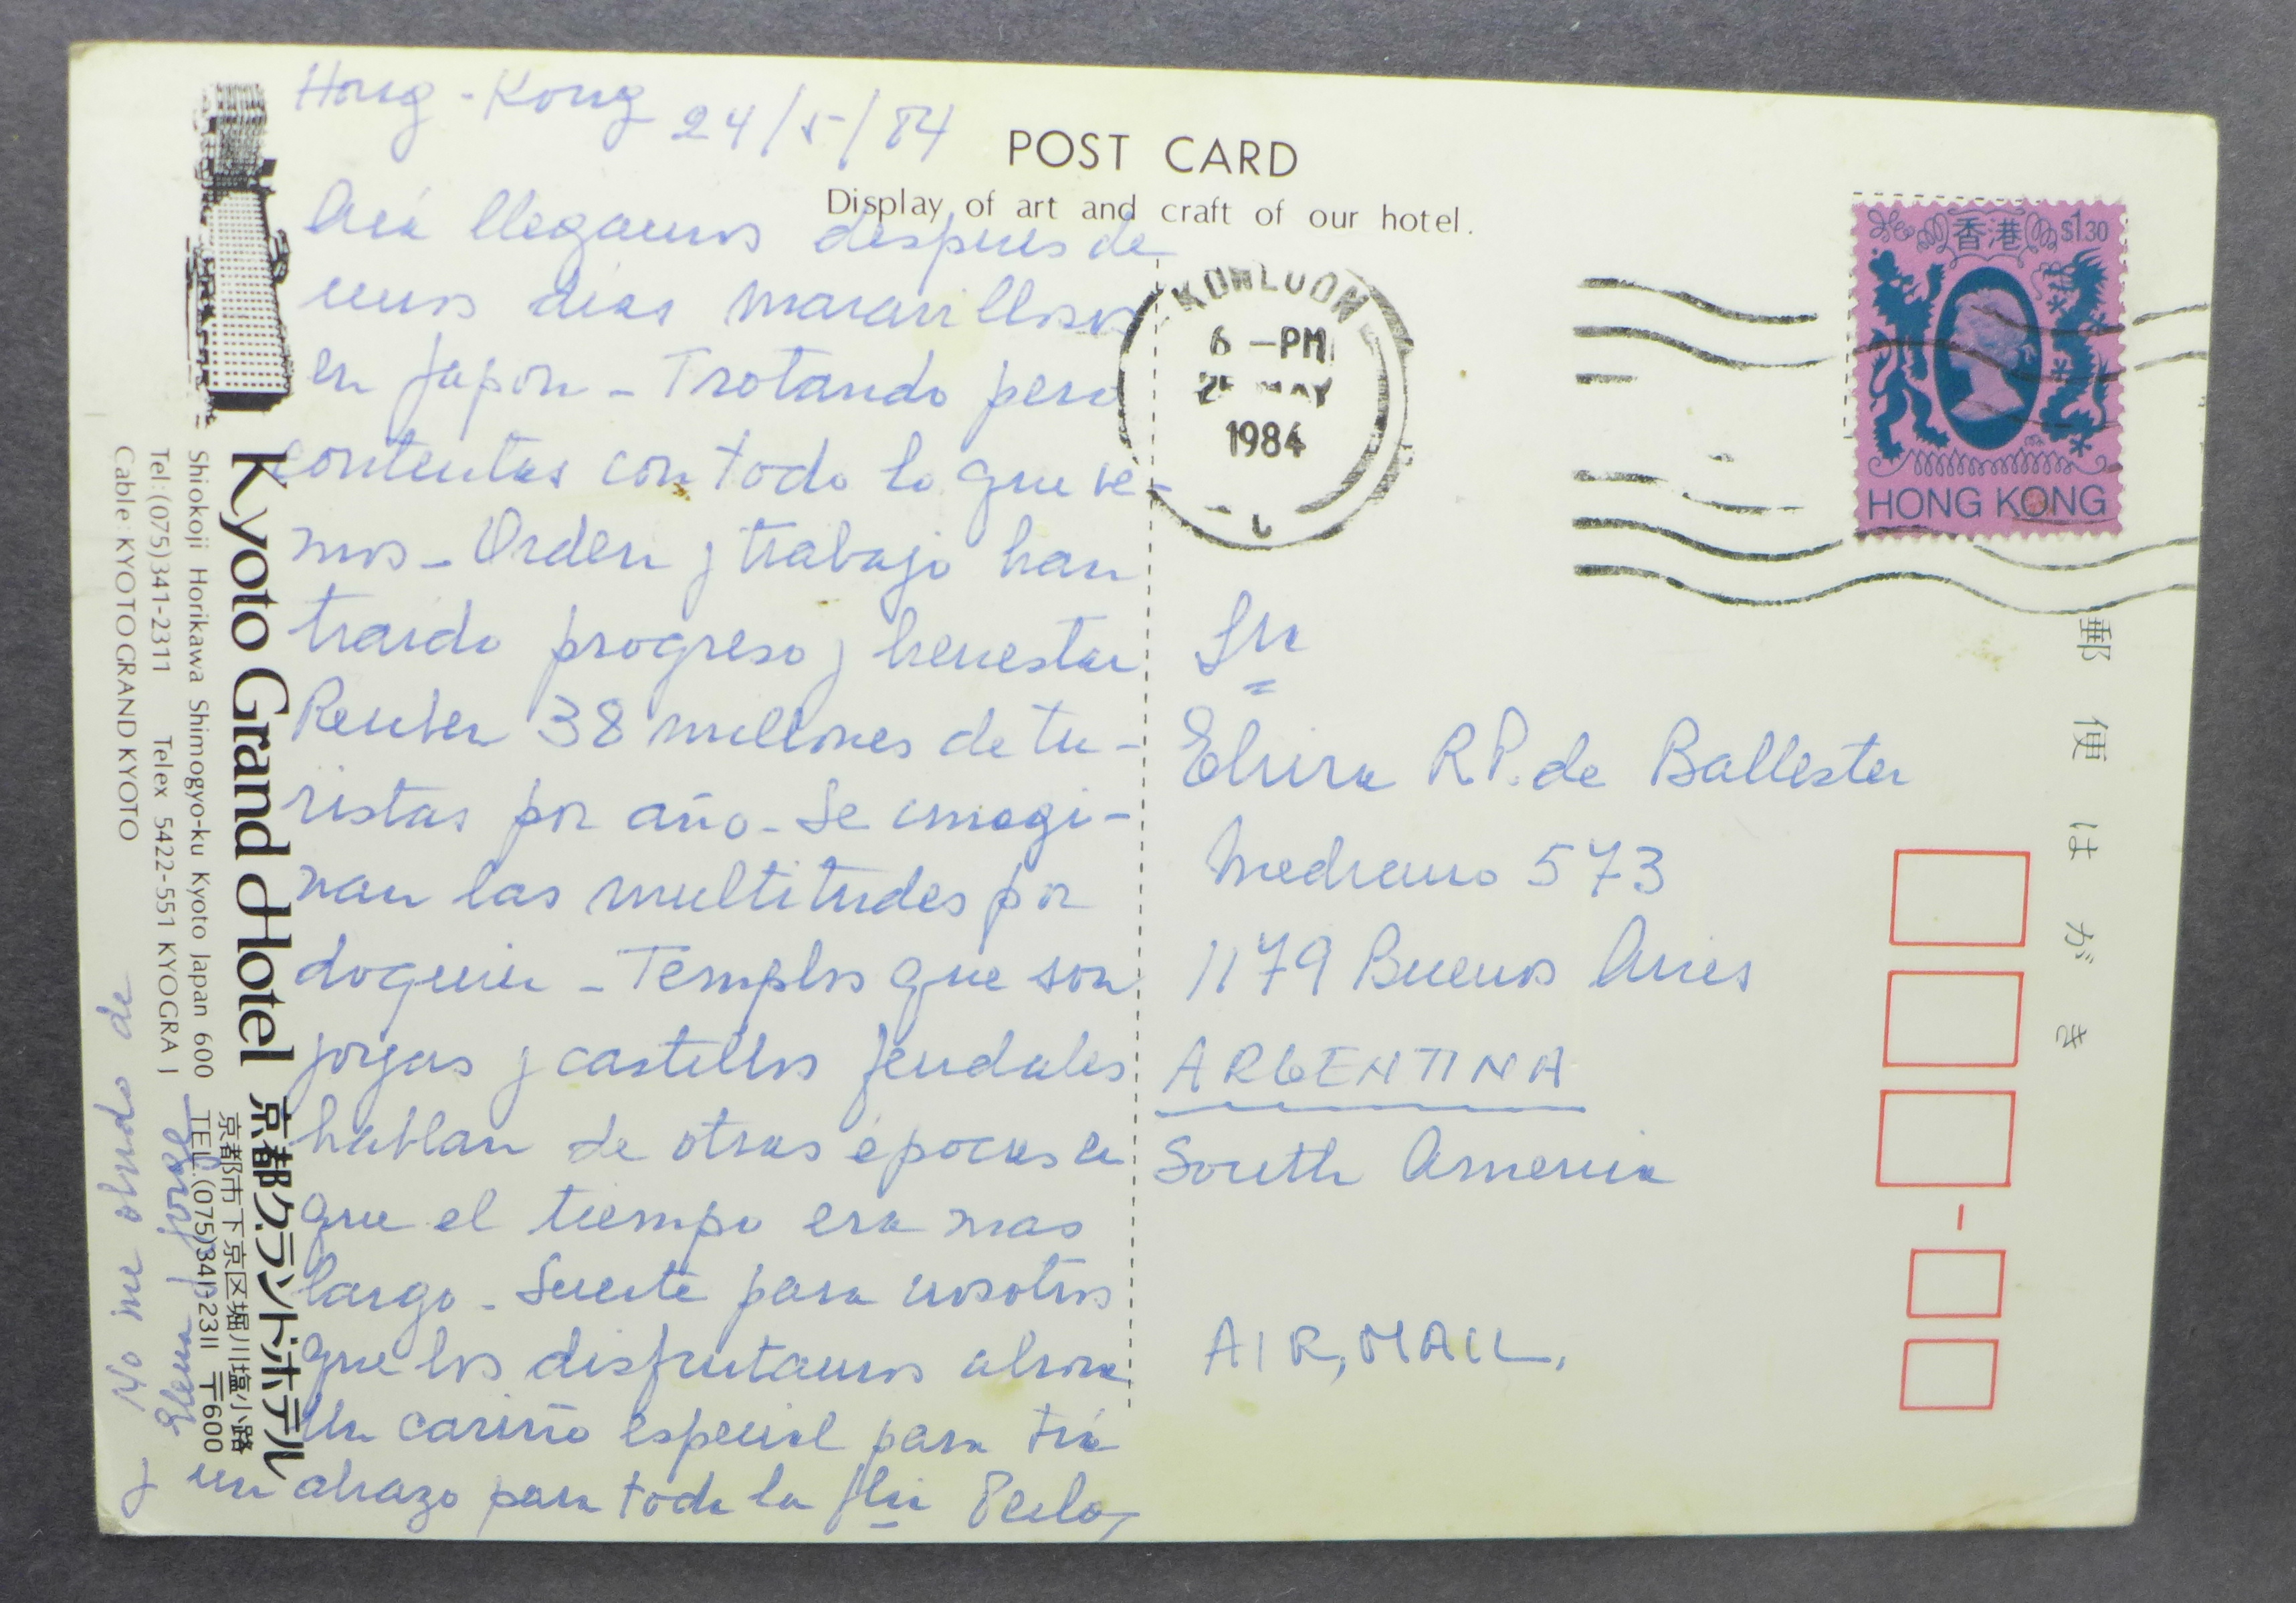 Hong-Kong 24/5/84
POST CARD
Display of art and craft of our hotel.
Acá llegamos después de
unos días maravillosos
en Japón - Trotando pero
contentas con todo lo que ve-
mos - Orden y trabajo han
traído progreso y bienestar
Reciben 38 millones de tu-
ristas por año - Se imagi-
nan las multitudes por
doquier - Templos que son
joyas y castillos feudales
hablan de otras épocas en
que el tiempo era mas
largo - Suerte para nosotros
que los disfrutamos ahora
Un cariño especial para tía
y un abrazo para toda la flia
No me olvido de
Elena y Jorge
Kyoto Grand Hotel 京都グランドホテル
Shiokoji Horikawa Shimogyo-ku Kyoto Japan 600
Tel:(075)341-2311 Telex 5422-551 KYOGRA J
Cable:KYOTOGRAND KYOTO
京都市下京区堀川塩小路
TEL.(075)341-2311 〒600
KOWLOON
6 -PM
MAY
1984
香港 $1.30
HONG KONG
Sra
Elvira R.P. de Ballester
Medrano 573
1179 Buenos Aires
ARGENTINA
South America
AIR, MAIL.
郵便はがき